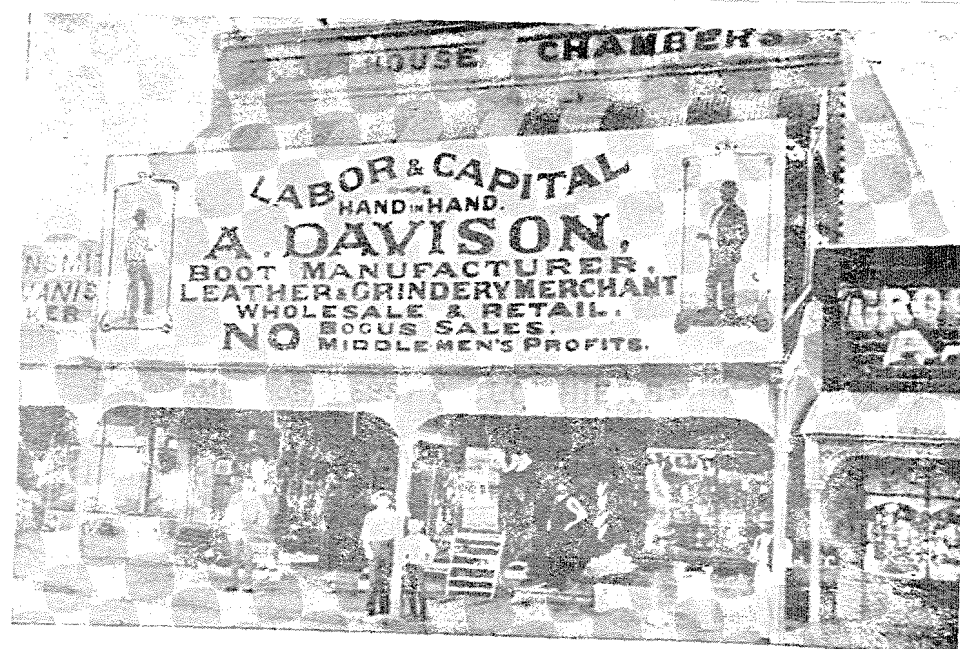 HOUSE CHAMBERS
LABOR & CAPITAL
HAND IN HAND.
A. DAVISON,
BOOT MANUFACTURER.
LEATHER & GRINDERY MERCHANT
WHOLESALE & RETAIL.
NO BOGUS SALES.
MIDDLEMEN'S PROFITS.